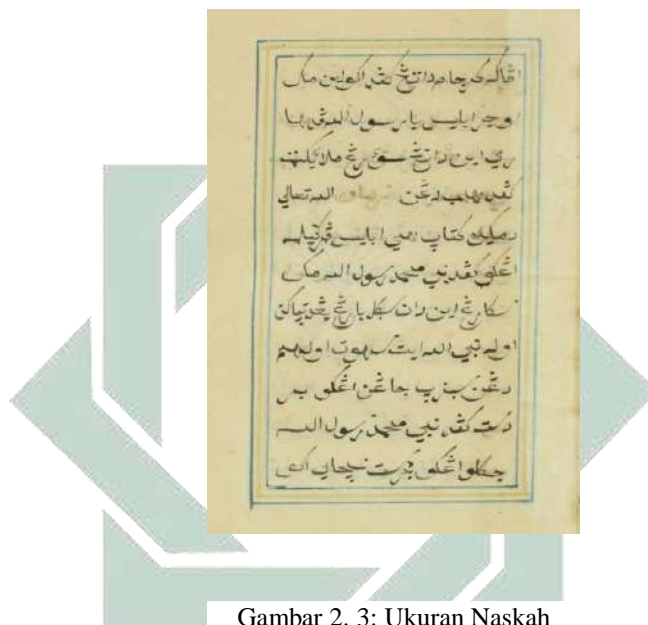 اڠكه كرجام داتڠ كفد اكو اين مك
اوجر ابليس يا رسول الله فد
هاري اين داتڠ سؤرڠ ملايكة
كفد همب دڠن فرمان الله تعالى
دمكين كتاڽ هي ابليس فركيله
اڠكو كفد نبي محمد رسول الله مك
سكارڠ اين دان سكل يارڠ يڠدتياكن
اوله نبي الله ايت سهوت اولهم
دڠن سبنرڽ جاڠن اڠكو بر
دست كفد نبي محمد رسول الله
جكلو اڠكو بردست نسچاي اكن
Gambar 2. 3: Ukuran Naskah